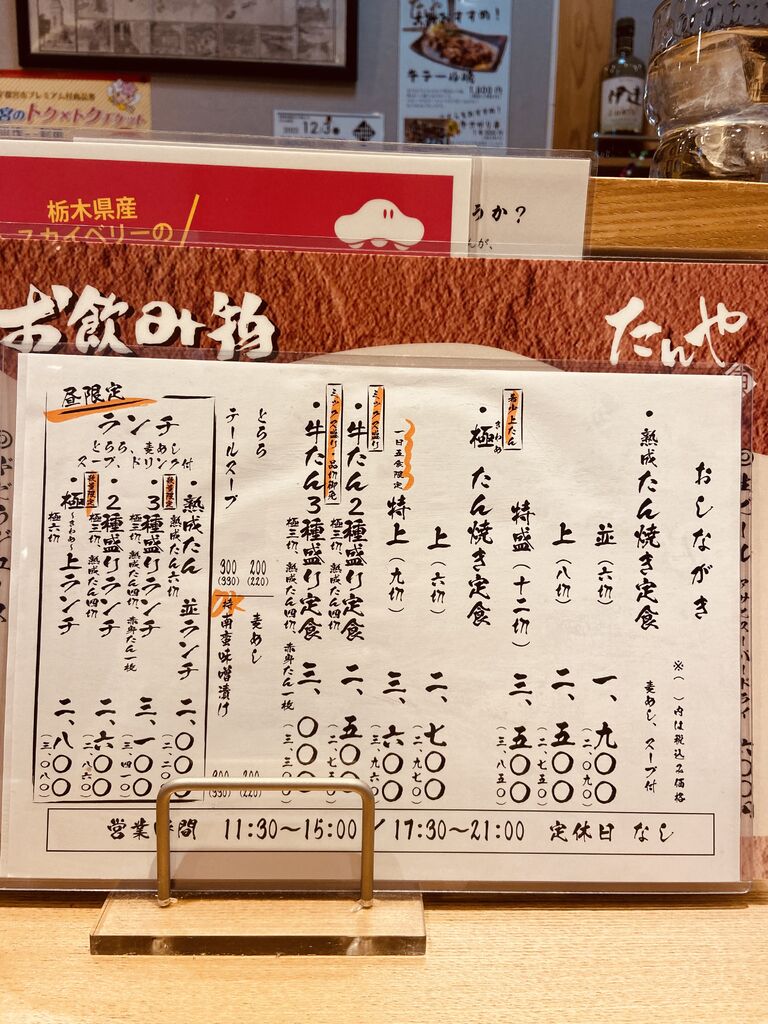 牛テール焼
12.3
トク×トクチケット
伊達
栃木県産
スカイベリーの
うか?
んが、
お飲み物
たんや
おしながき
※( )内は税込み価格
・熟成たん焼き定食
麦めし、スープ付
並(六切) 一、九〇〇
(二、〇九〇)
上(八切) 二、五〇〇
(二、七五〇)
特盛(十二切) 三、五〇〇
(三、八五〇)
・極たん焼き定食
きわめ
上(六切) 二、七〇〇
(二、九七〇)
一日五食限定
特上(九切) 三、六〇〇
(三、九六〇)
ミックス盛り
・牛たん2種盛り定食 二、五〇〇
極三切、熟成たん四切 (二、七五〇)
ミックス盛り・品切御免
・牛たん3種盛り定食 三、〇〇〇
極三切、熟成たん四切、赤身たん一枚 (三、三〇〇)
とろろ 200
(220)
テールスープ 900
(990)
麦めし 200
(220)
特南蛮味噌漬け
(330)
昼限定
ランチ
とろろ、麦めし
スープ、ドリンク付
・熟成たん 並ランチ 二、〇〇〇
熟成たん六切 (二、二〇〇)
数量限定
・3種盛りランチ 三、一〇〇
極三切、熟成たん四切、赤身たん一枚 (三、四一〇)
・2種盛りランチ 二、六〇〇
極三切、熟成たん四切 (二、八六〇)
数量限定
・極~きわめ~上ランチ 二、八〇〇
極六切 (三、〇八〇)
営業時間 11:30~15:00/17:30~21:00 定休日 なし
アサヒスーパードライ 六〇〇